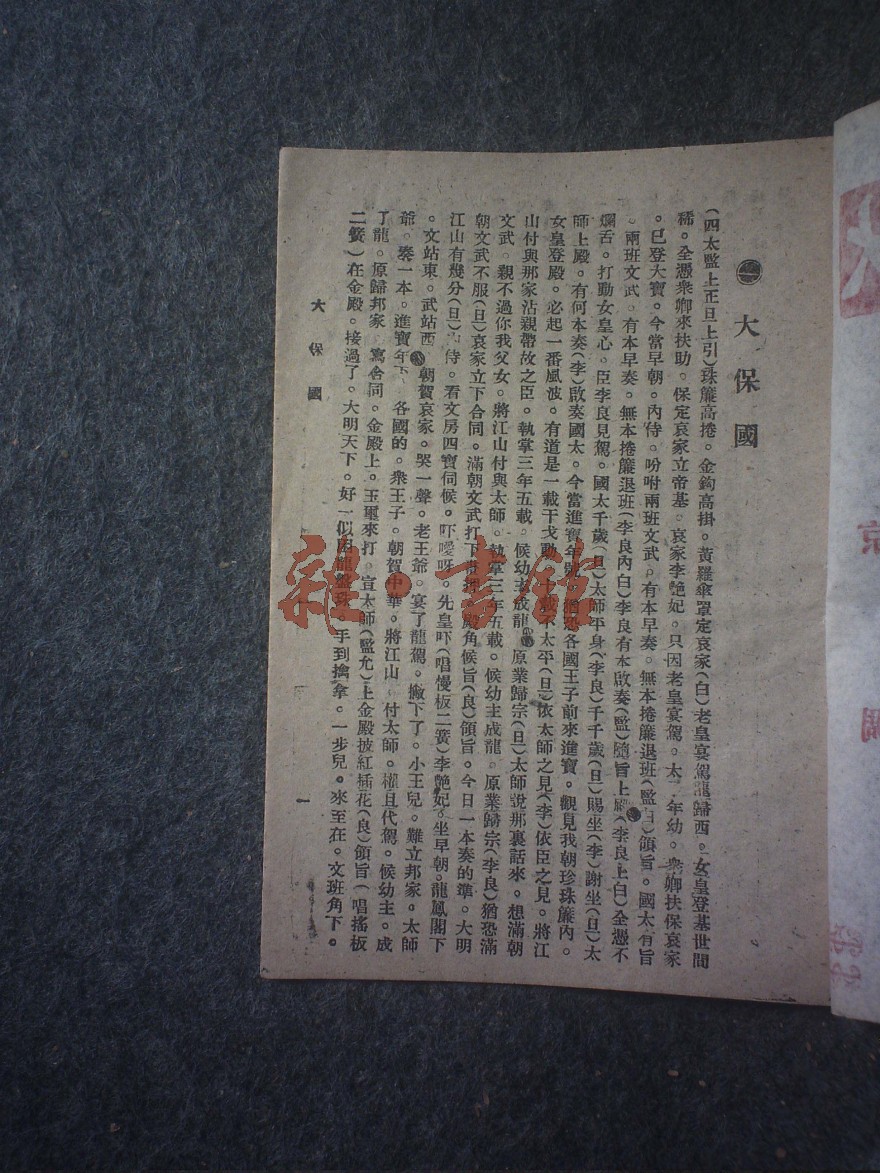 大保國
(四太監上正旦上引)珠簾高捲。金鈎高掛。黃羅傘罩定哀家(白)老皇宴駕龍歸西。女皇登基世間
稀。全憑衆卿來扶助。保定哀家立帝基。哀家李艶妃。只因老皇宴駕。太 年幼。衆卿扶保哀家
。已登大寶。今當早朝。內侍。吩咐兩班文武。有本早奏。無本捲簾退班(監白)領旨。國太有旨
。兩班文武。有本早奏。無本捲簾退班(李良內白)李良有本啟奏(監)隨旨上殿(李良上白)全憑不
爛舌。打動女皇心。臣李良見駕。國太千歲(旦)太師平身(李良)千千歲(旦)賜坐(李)謝坐(旦)太
師上殿。有何本奏(李)啟奏國太。今當進寶年 恐各國王子前來進寶。觀見我朝珍珠簾內。
女皇登殿。必起一番風波。有道是一載干戈動。十載不太平(旦)依太師之見(李)依臣之見。將江
山付與那家沾親帶故之臣。執掌三年五載。候幼主成龍。原業歸宗(旦)太師說那裏話來。想滿朝
文武。親不過你我父女。將江山付與太師。執掌三年五載。候幼主成龍。原業歸宗(李良)猶恐滿
朝文武不服(旦)哀家立下合同。滿朝文武打下 殿角候旨(良)領旨。今日一本奏的準。大明
江山有幾分(旦)內侍。看文房四寶伺候。吓噯呀。先皇吓(唱慢板二簧)李艶妃。坐早朝。龍鳳閣下
。文站東。武站西。朝賀哀家。哭一聲。老王爺。宴了龍駕。撇下了。小王兒。難立邦家。太師
爺。奏一本。進寶年下。各國的。衆王子。朝賀中華。將江山 付太師。權且代駕。候幼主。成
了龍。原歸邦家。寫合同。金殿上。玉璽來打。宣太師(監允)上金殿披紅插花(良)領旨(唱搖板
二簧)在金殿。接過了。大明天下。好一似困龍盤珠 手到擒拿。一步兒。來至在。文班角下。
大保國
一
雜·書館